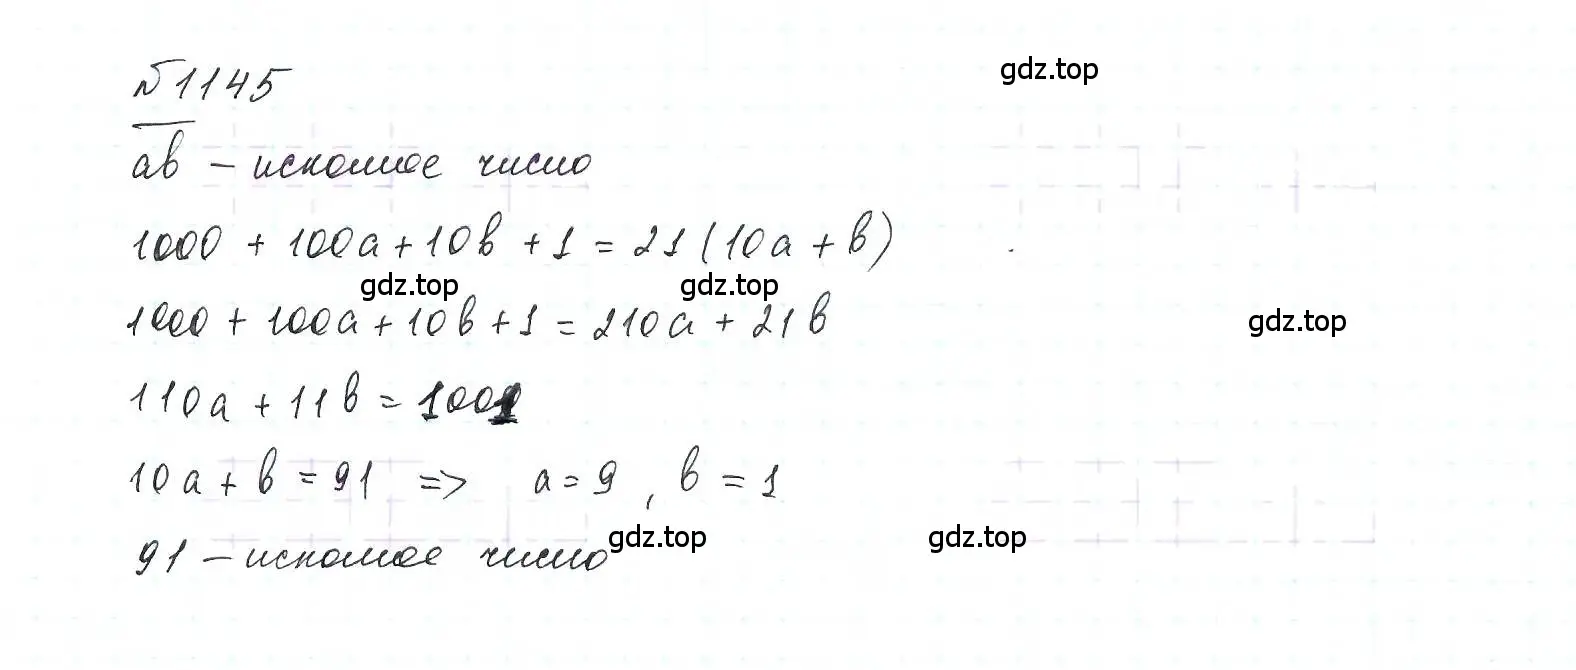 №1145 gdz.top
ab – искомое число
1000 + 100a + 10b + 1 = 21(10a + b)
gdz.top gdz.top
1000 + 100a + 10b + 1 = 210a + 21b gdz.top
110a + 11b = 1001
10a + b = 91 => a = 9, b = 1
91 – искомое число gdz.top gdz.top